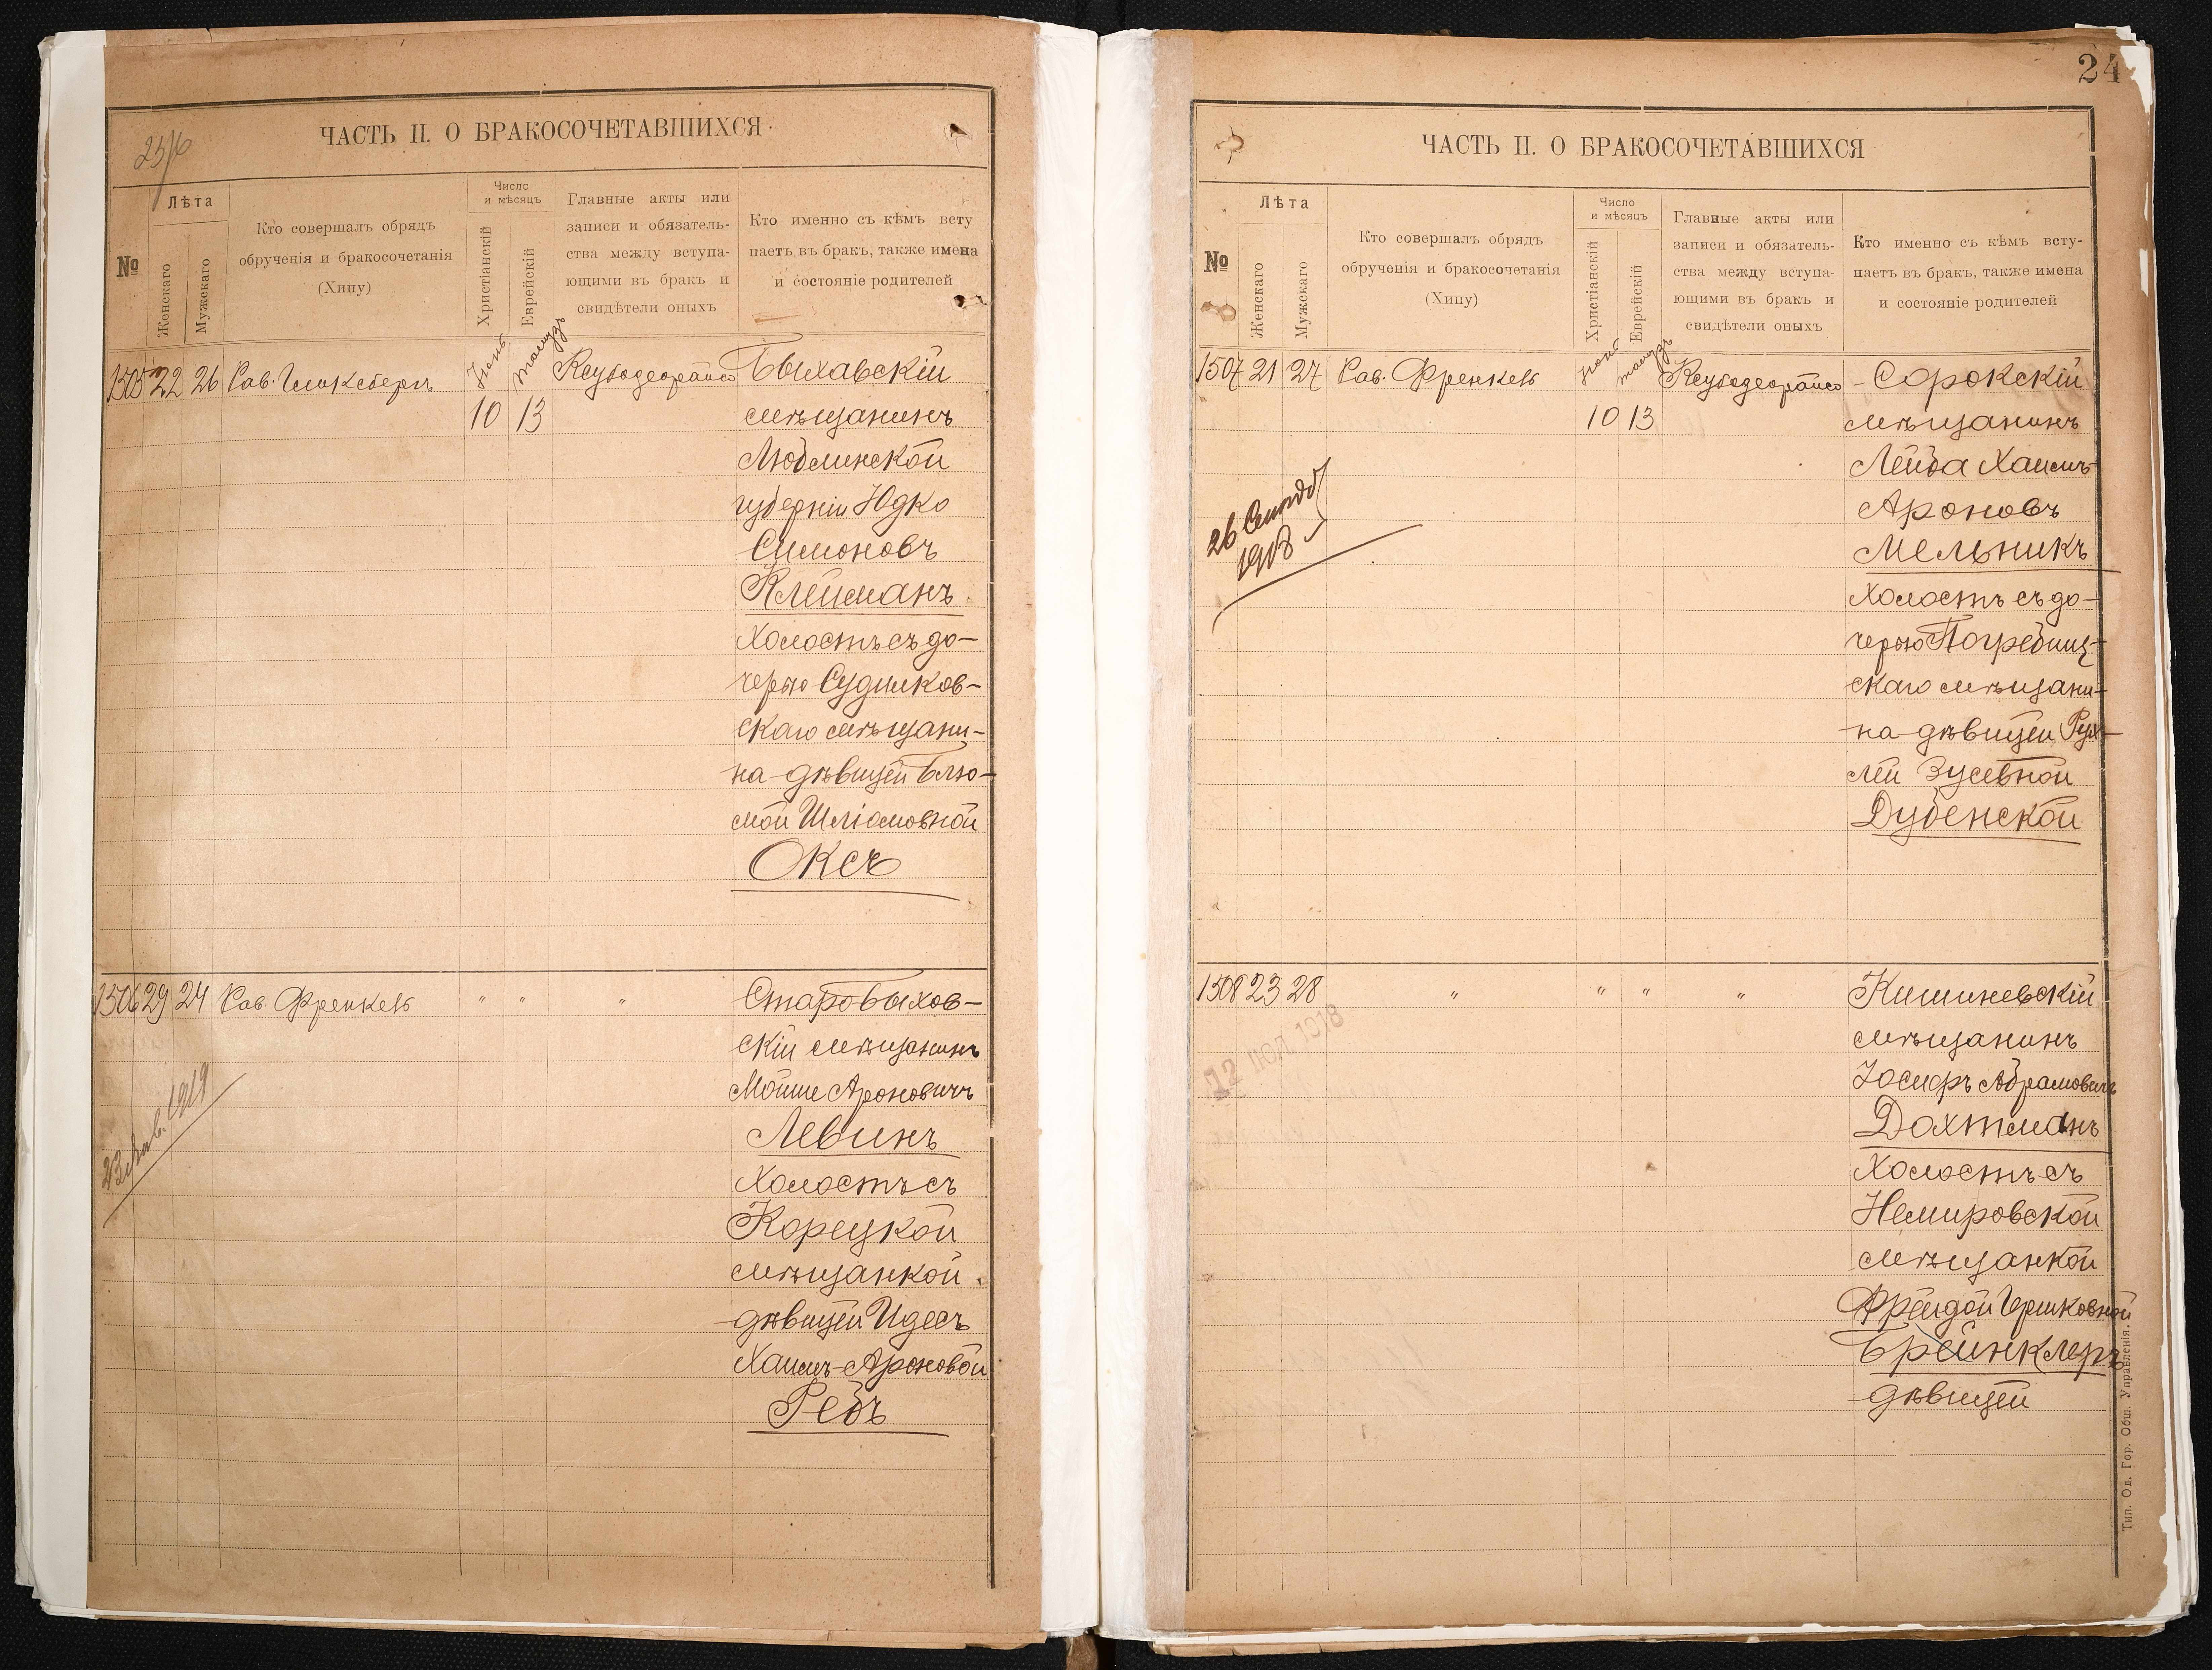 ЧАСТЬ II. О БРАКОСОЧЕТАВШИХСЯ
№
Лѣта
Женскаго
Мужскаго
Кто совершалъ обрядъ
обрученія и бракосочетанія
(Хипу)
Число
и мѣсяцъ
Христіанскій
Еврейскій
Главные акты или
записи и обязатель-
ства между вступа-
ющими въ бракъ и
свидѣтели оныхъ
Кто именно съ кѣмъ всту
паетъ въ бракъ, также имена
и состояніе родителей
1505 22 26 Рав. Гликсбергъ
Іюнь
10 13
Быхавскій
мѣщанинъ
Люблинской
губерніи Юдко
Симоновъ
Клейманъ
холостъ съ до-
черью Судилков-
скаго мѣщани-
на дѣвицей Блю-
мой Шліомовной
Оксъ
1506 29 24 Рав. Френкель " " "
Старобыхов-
скій мѣщанинъ
Мойше Ароновичъ
Левинъ
холостъ съ
Корецкой
мѣщанкой
дѣвицей Идесъ
Хаимъ-Ароновой
Ребъ
1919
24
ЧАСТЬ II. О БРАКОСОЧЕТАВШИХСЯ
№
Лѣта
Женскаго
Мужскаго
Кто совершалъ обрядъ
обрученія и бракосочетанія
(Хипу)
Число
и мѣсяцъ
Христіанскій
Еврейскій
Главные акты или
записи и обязатель-
ства между вступа-
ющими въ бракъ и
свидѣтели оныхъ
Кто именно съ кѣмъ всту-
паетъ въ бракъ, также имена
и состояніе родителей
1507 21 27 Рав. Френкель
10 13
Сорокскій
мѣщанинъ
Лейба Хаимъ
Ароновъ
Мельникъ
холостъ съ до-
черью Погребищ-
скаго мѣщани-
на дѣвицей Рух-
лей Зусевной
Дубенской
26
1918
1508 23 28 " " " "
Кишиневскій
мѣщанинъ
Іосифъ Абрамовичъ
Дохтманъ
холостъ съ
Немировской
мѣщанкой
Фрейдой Гершковной
Брейнклеръ
дѣвицей
12 ІЮЛ 1918
Тип. Од. Гор. Общ. Управленія.